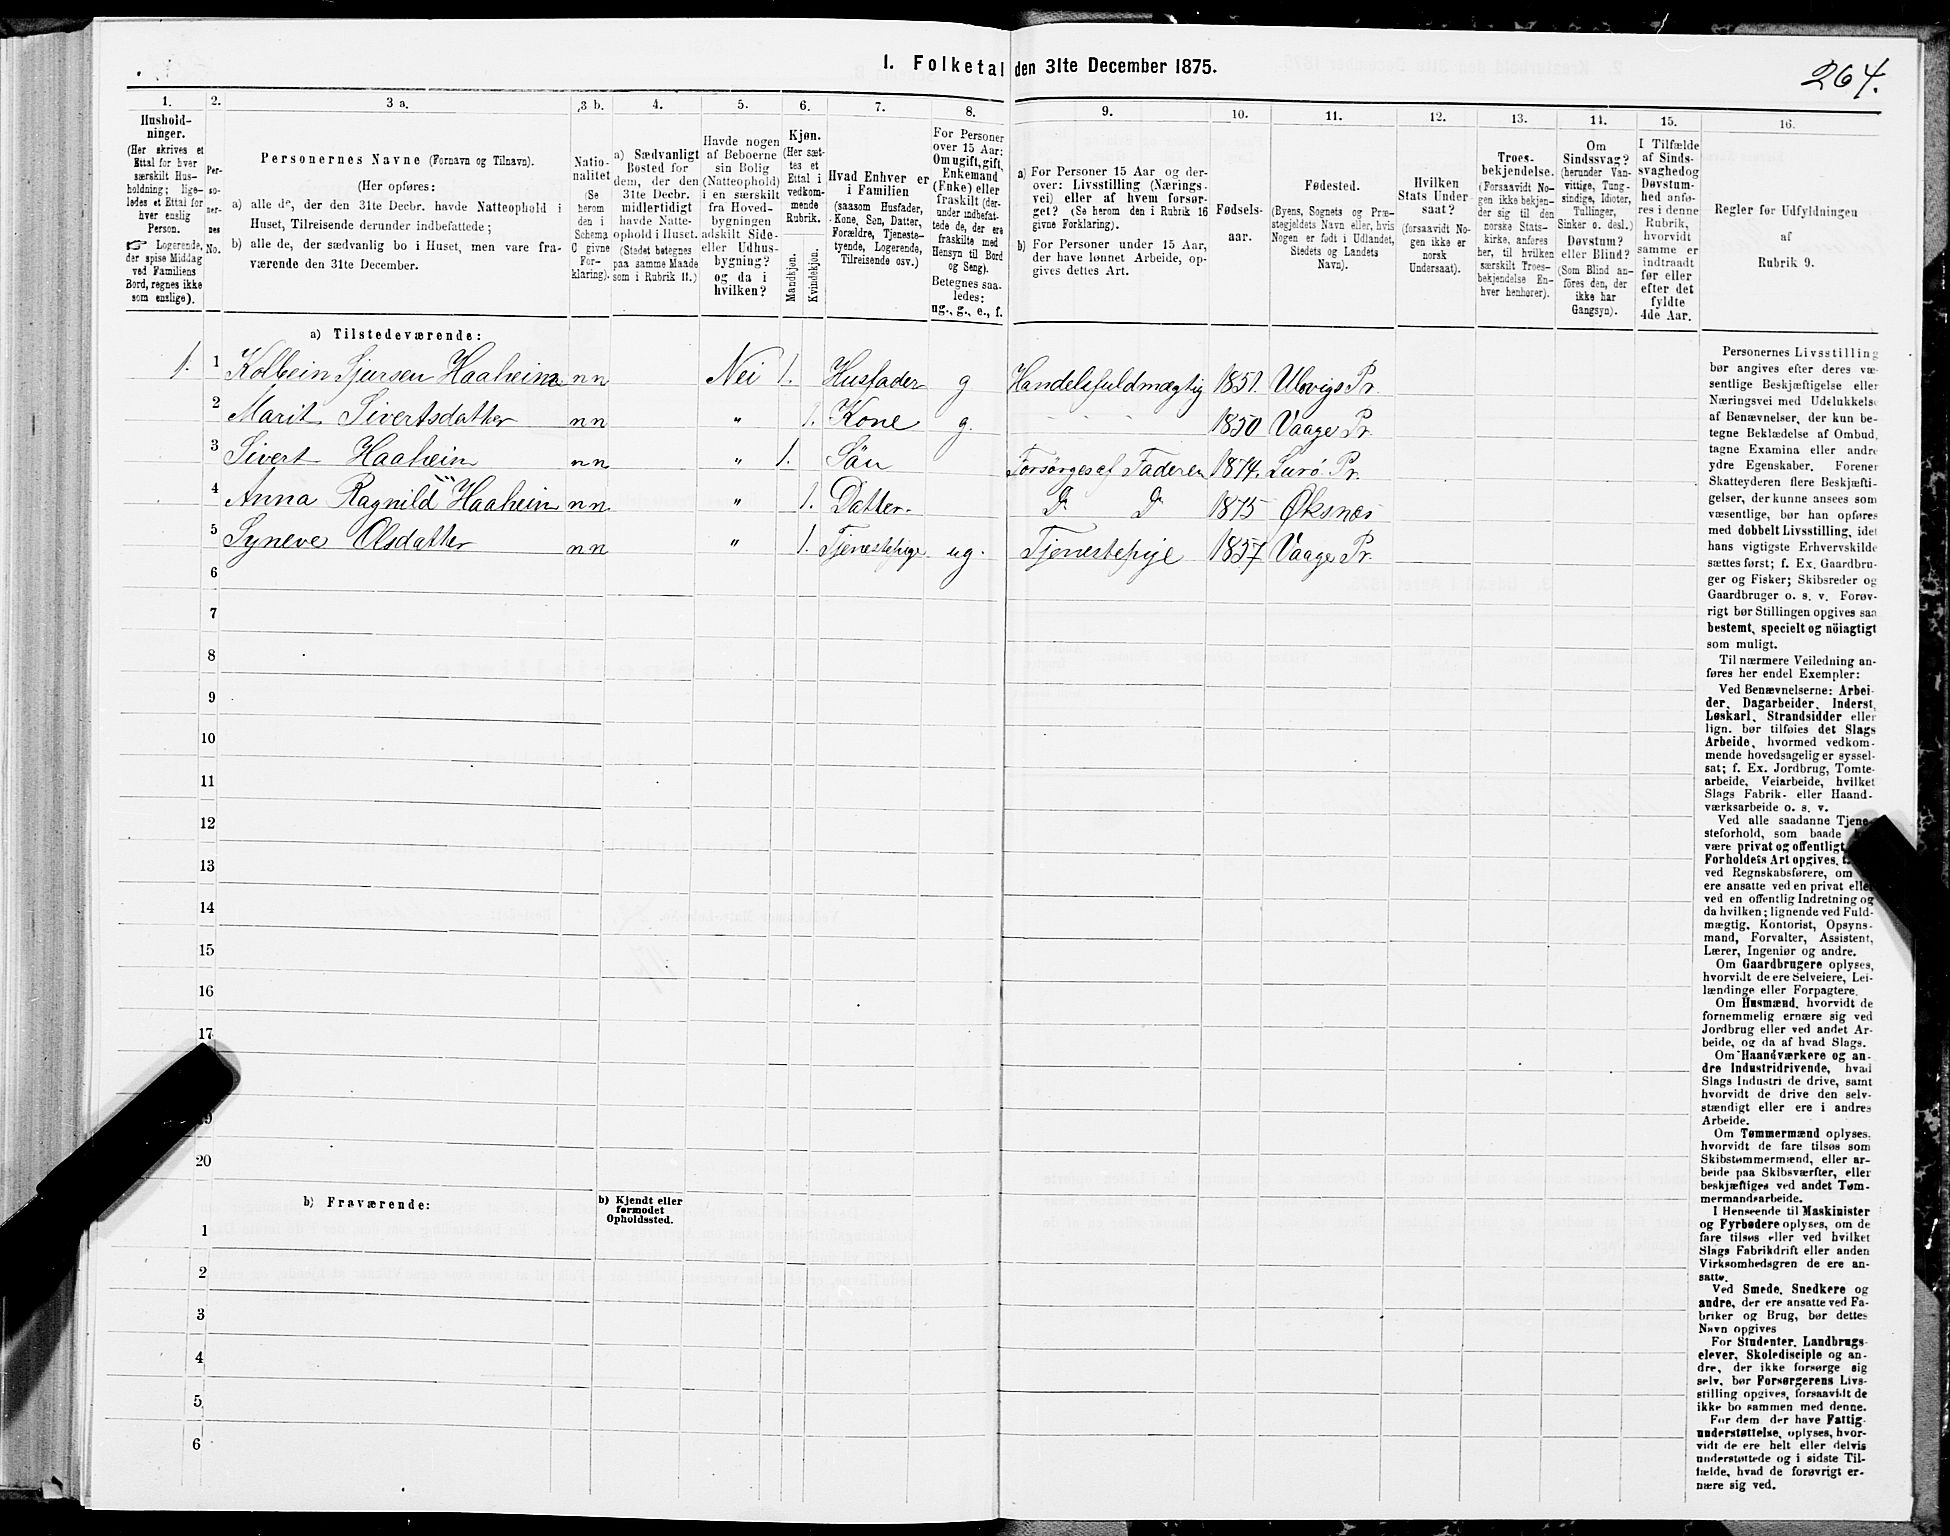 1. Folketal den 31te December 1875.
264.
1. 2. 3 a. 3 b. 4. 5. 6. 7. 8. 9. 10. 11. 12. 13. 14. 15. 16.
Hushold-
ninger.
(Her skrives et
Ettal for hver
særskilt Hus-
holdning; lige-
ledes et Ettal for
hver enslig
Person.
☞ Logerende,
der spise Middag
ved Familiens
Bord, regnes ikke
som enslige).
Per-
so-
ner-
nes
No.
Personernes Navne (Fornavn og Tilnavn).
(Her opføres:
a) alle de, der den 31te Decbr. havde Natteophold i
Huset, Tilreisende derunder indbefattede;
b) alle de, der sædvanlig bo i Huset, men vare fra-
værende den 31te December.
Natio-
nalitet
(Se
herom
den i
Schema
C givne
For-
klaring).
a) Sædvanligt
Bosted for
dem, der den
31te Decbr.
midlertidigt
havde Natte-
ophold i Huset.
(Stedet betegnes
paa samme Maade
som i Rubrik 11.)
Havde nogen
af Beboerne
sin Bolig
(Natteophold)
i en særskilt
fra Hoved-
bygningen
adskilt Side-
eller Udhus-
bygning?
og da i
hvilken?
Kjøn.
(Her sæt-
tes et
Ettal i
vedkom-
mende
Rubrik.
Mandkjøn.
Kvindekjøn.
Hvad Enhver er
i Familien
(saasom Husfader,
Kone, Søn, Datter,
Forældre, Tjeneste-
tyende, Logerende,
Tilreisende osv.).
For Personer
over 15 Aar:
Om ugift, gift,
Enkemand
(Enke) eller
fraskilt (der-
under indbefat-
tede de, der ere
fraskilte med
Hensyn til Bord
og Seng).
Betegnes saa-
ledes:
ug., g., e., f.
a) For Personer 15 Aar og der-
over: Livsstilling (Nærings-
vei) eller af hvem forsør-
get? (Se herom den i Rubrik 16
givne Forklaring).
b) For Personer under 15 Aar,
der have lønnet Arbeide, op-
gives dettes Art.
Fødsels-
aar.
Fødested.
(Byens, Sognets og Præ-
stegjeldets Navn eller, hvis
Nogen er født i Udlandet,
Stedets og Landets
Navn).
Hvilken
Stats Under
saat?
(forsaavidt No-
gen ikke er
norsk
Undersaat).
Troes-
bekjendelse.
(Forsaavidt No-
gen ikke bekjen-
der sig til den
norske Stats-
kirke, anføres
her, til hvilken
særskilt Troes-
bekjendelse En-
hver henhører).
Om
Sindssvag?
(herunder Van-
vittige, Tung-
sindige, Idioter,
Tullinger,
Sinker o. desl.)
Døvstum?
eller Blind?
(Som Blind an-
føres den, der
ikke har
Gangsyn).
I Tilfælde
af Sinds-
svaghed og
Døvstum-
hed anfø-
res i denne
Rubrik,
hvorvidt
samme er
indtraadt
før eller
efter det
fyldte
4de Aar.
Regler for Udfyldningen
af
Rubrik 9.
a) Tilstedeværende:
1. 1 Kolbein Sjursen Haaheim nn Nei 1. Husfader g Handelsfuldmægtig 1851. Ulvigs Pr.
2 Marit Sivertsdatter nn " 1. Kone g. 1850 Vaage Pr.
3 Sivert Haaheim nn " 1. Sön Forsörges af Faderen 1874. Lurö Pr.
4 Anna Ragnild Haaheim nn " 1. Datter. D. D. 1875 Øksnæs
5 Syneve Olsdatter nn " 1. Tjenestepige ug. Tjenestepige 1857. Vaage Pr.
6
7
8
9
10
11
12
13
14
15
16
17
20
b) Fraværende:
b) Kjendt eller
formodet
Opholdssted.
1
2
3
4
5
6
Personernes Livsstilling
bør angives efter deres væ-
sentlige Beskjæftigelse eller
Næringsvei med Udelukkelse
af Benævnelser, der kun be-
tegne Beklædelse af Ombud,
tagne Examina eller andre
ydre Egenskaber. Forener
Skatteyderen flere Beskjæfti-
gelser, der kunne ansees som
væsentlige, bør han opføres
med dobbelt Livsstilling, idet
hans vigtigste Erhvervskilde
sættes først; f. Ex. Gaardbru-
ger og Fisker; Skibsreder og
Gaardbruger o. s. v. Forøv-
rigt bør Stillingen opgives saa
bestemt, specielt og nöiagtigt
som muligt.
Til nærmere Veiledning an-
føres her endel Exempler:
Ved Benævnelserne: Arbei-
der, Dagarbeider, Inderst,
Løskarl, Strandsidder eller
lign. bør tilføies det Slags
Arbeide, hvormed vedkom-
mende hovedsagelig er syssel-
sat; f. Ex. Jordbrug, Tomte-
arbeide, Veiarbeide, hvilket
Slags Fabrik- eller Haand-
værksarbeide o. s. v.
Ved alle saadanne Tjene-
steforhold, som baade
være privat og offentligt,
Forholdets Art opgives,
ved Regnskabsførere, om
ere ansatte ved en privat eller
ved en offentlig Indretning og
da hvilken; lignende ved Fuld-
mægtig, Kontorist, Opsyns-
mand, Forvalter, Assistent,
Lærer, Ingeniør og andre.
Om Gaardbrugere oplyses,
hvorvidt de ere Selveiere, Lei-
lændinge eller Forpagtere.
Om Husmænd, hvorvidt de
fornemmelig ernære sig ved
Jordbrug eller ved andet Ar-
beide, og da af hvad Slags.
Om Haandværkere og an-
dre Industridrivende, hvad
Slags Industri de drive, samt
hvorvidt de drive den selv-
stændigt eller ere i andres
Arbeide.
Om Tømmermænd oplyses,
hvorvidt de fare tilsøs som
Skibstømmermænd, eller ar-
beide paa Skibsværfter, eller
beskjæftiges ved andet Tøm-
mermandsarbeide.
I Henseende til Maskinister
og Fyrbødere oplyses, om de
fare tilsøs eller ved hvilket
Slags Fabrikdrift eller anden
Virksomhedsgren de ere an-
satte.
Ved Smede, Snedkere og
andre, der ere ansatte ved Fa-
briker og Brug, bør dettes
Navn opgives
For Studenter, Landbrugs-
elever, Skoledisciple og an-
dre, der ikke forsørge sig
selv, bør Forsørgerens Livs-
stilling opgives, forsaavidt de
ikke bo sammen med denne.
For dem, der have Fattig-
understøttelse, oplyses, hvor-
vidt de ere helt eller delvis
understøttede og i sidste Til-
fælde, hvad de forøvrigt er-
nære sig ved.